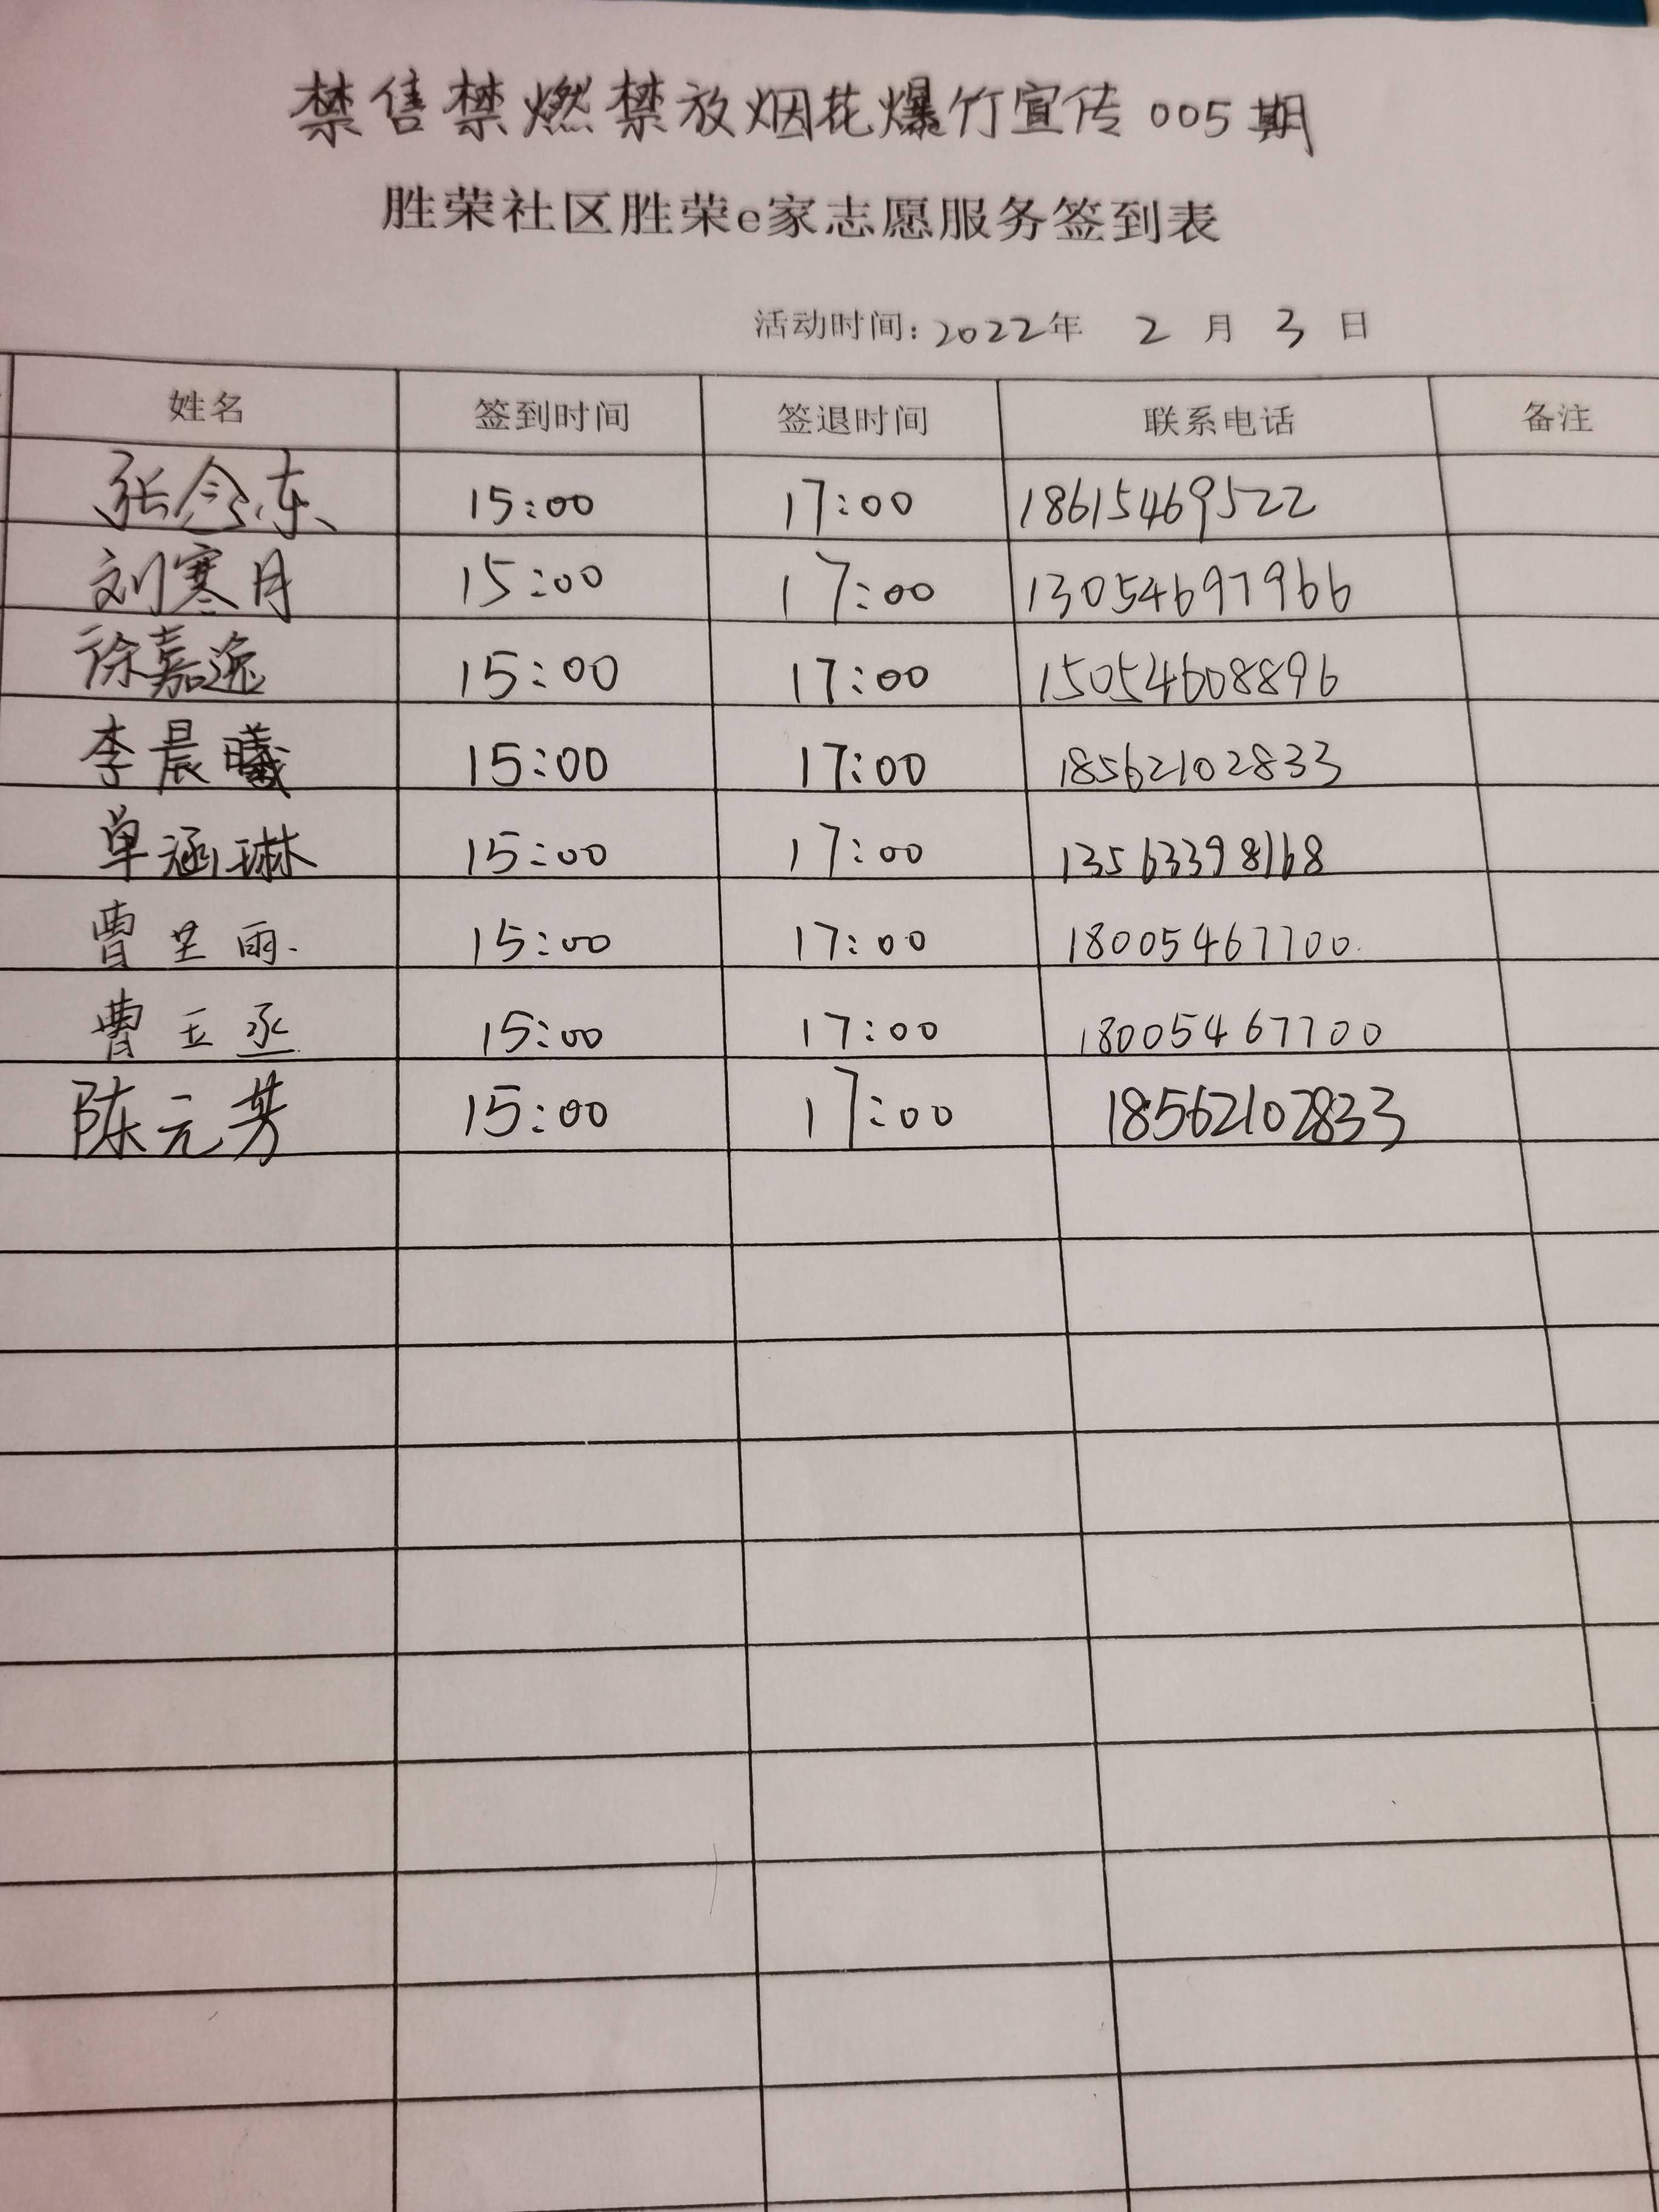 禁售禁燃禁放烟花爆竹宣传005期
胜荣社区胜荣e家志愿服务签到表
活动时间：2022年 2 月 3 日
姓名 签到时间 签退时间 联系电话 备注
张念东 15:00 17:00 18615469522
刘寒月 15:00 17:00 13054697966
徐嘉逸 15:00 17:00 15054608896
李晨曦 15:00 17:00 18562102833
单涵琳 15:00 17:00 13563398168
曹 雨 15:00 17:00 18005467700
曹玉丞 15:00 17:00 18005467700
陈元芳 15:00 17:00 18562102833